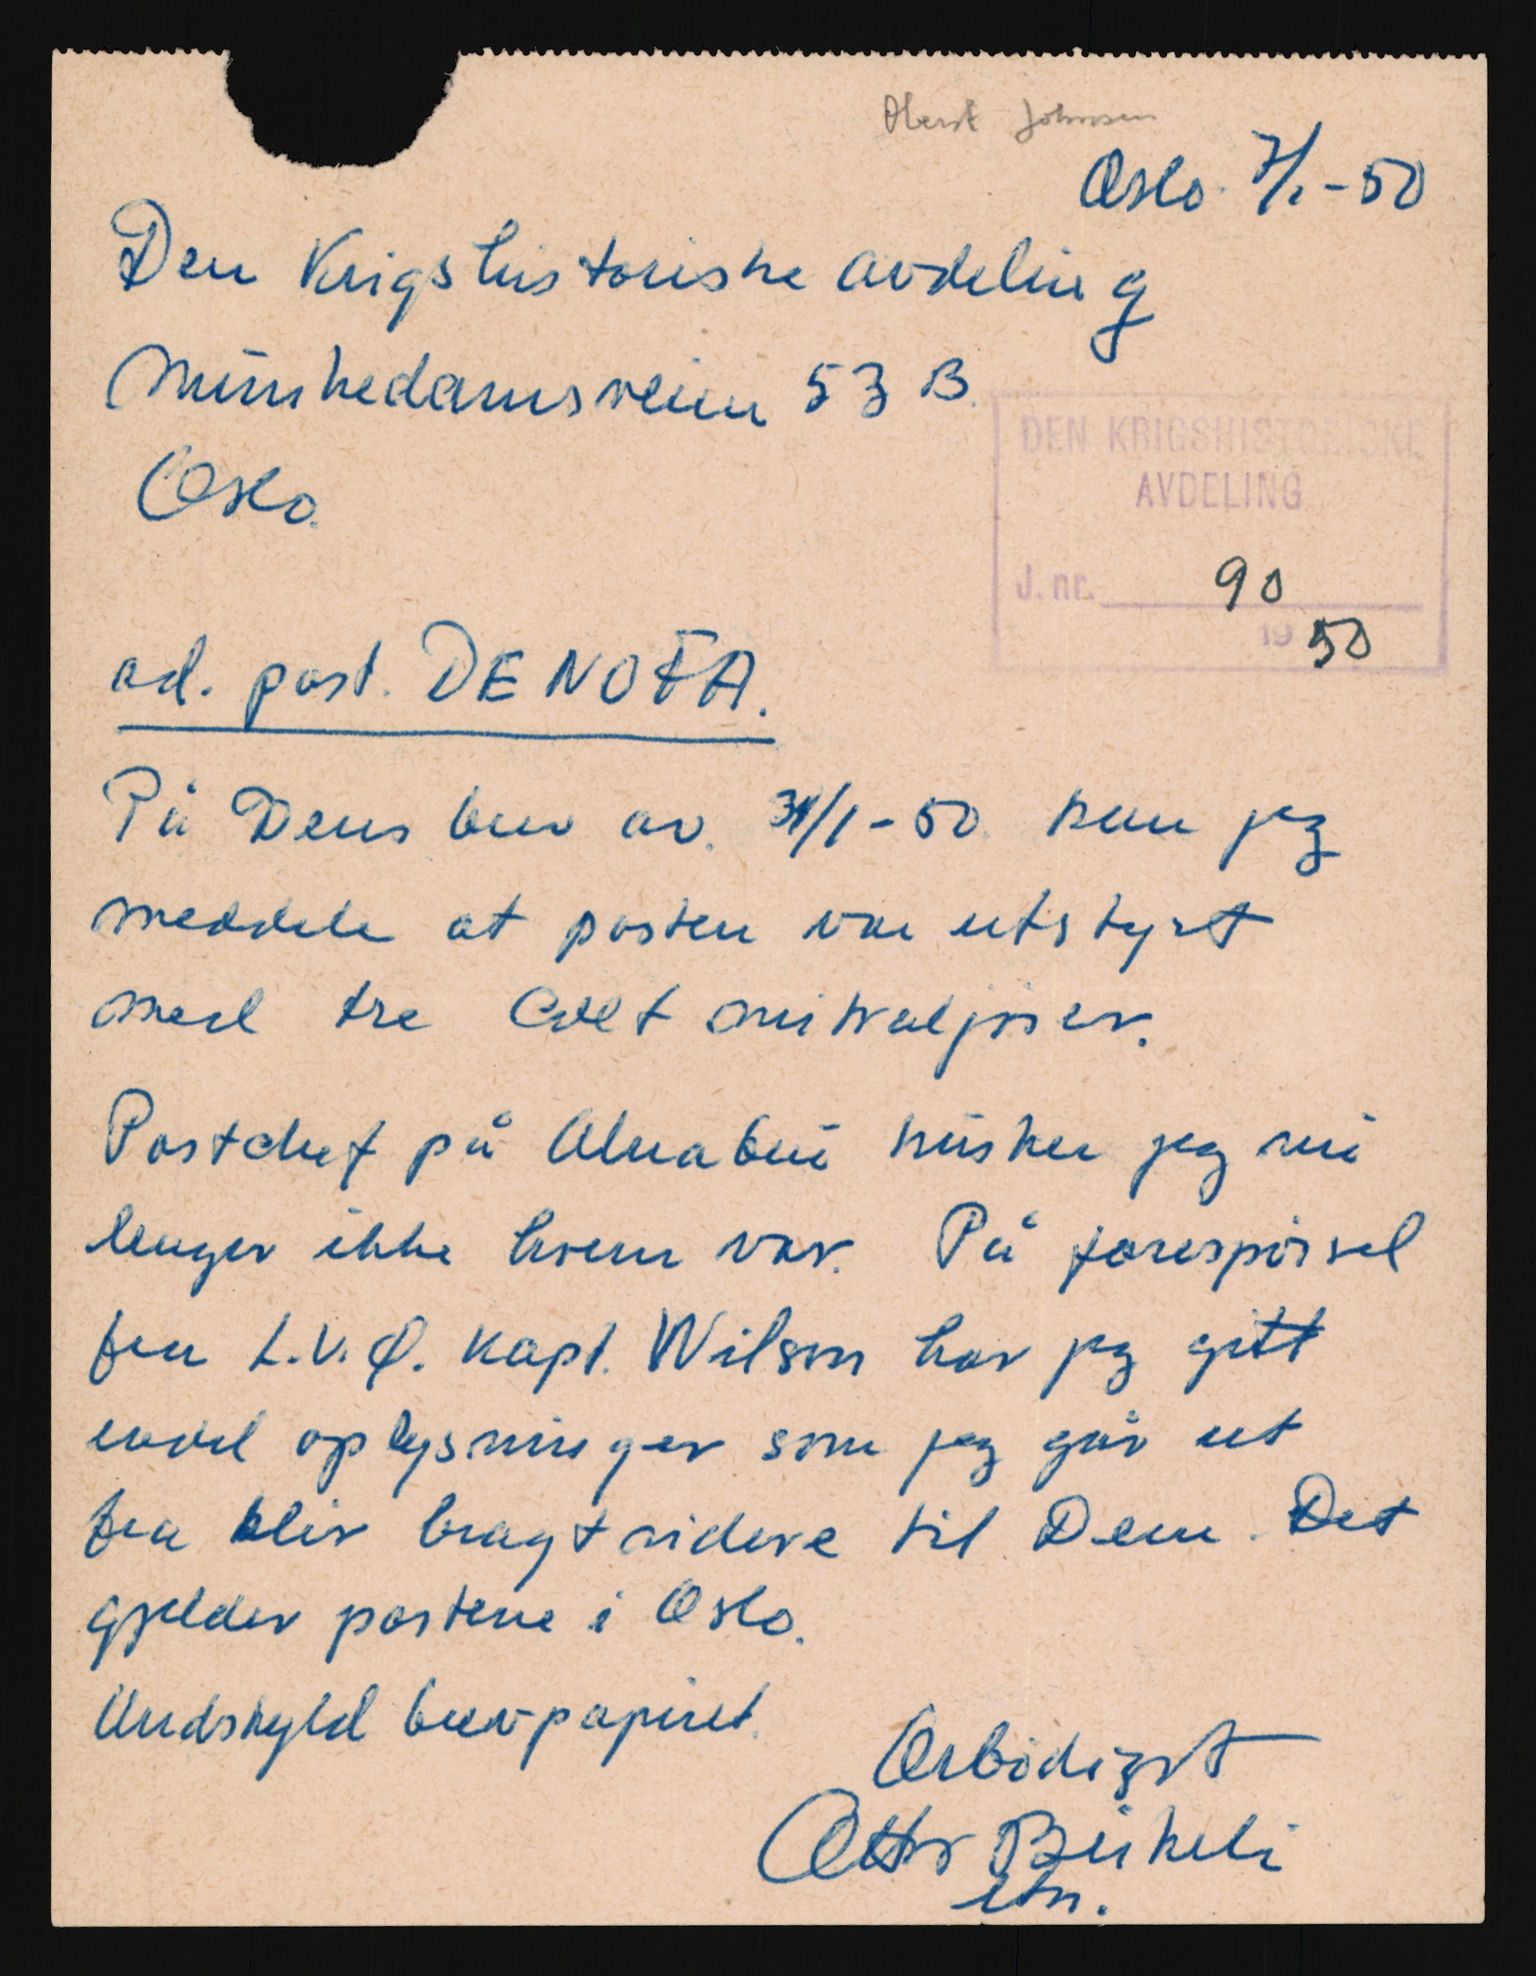 Oberst Johnsen
Oslo 7/2-50
Den Krigshistoriske avdeling
Munkedamsveien 53 B.
Oslo.
DEN KRIGSHISTORISKE
AVDELING
J. nr. 90
1950
ad. post. DENOFA.
På Deres brev av. 31/1-50 kan jeg
meddele at posten var utstyrt
med tre Colt mitraljøser.
Postchef på Alnabru husker jeg nu
lenger ikke hvem var. På forespørsel
fra L.V.Ø. Kapt. Wilson har jeg gitt
endel oplysninger som jeg går ut
fra blir bragt videre til Dem. Det
gjelder postene i Oslo.
Undskyld brevpapiret.
Ærbødigst
Otto Birkeli